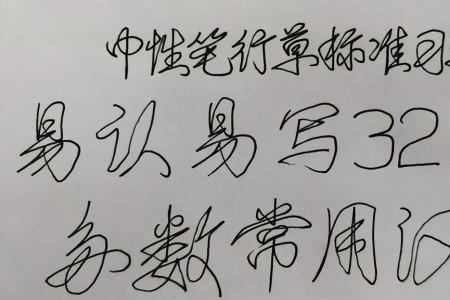 中性笔行草标准
易认易写32
多数常用汉